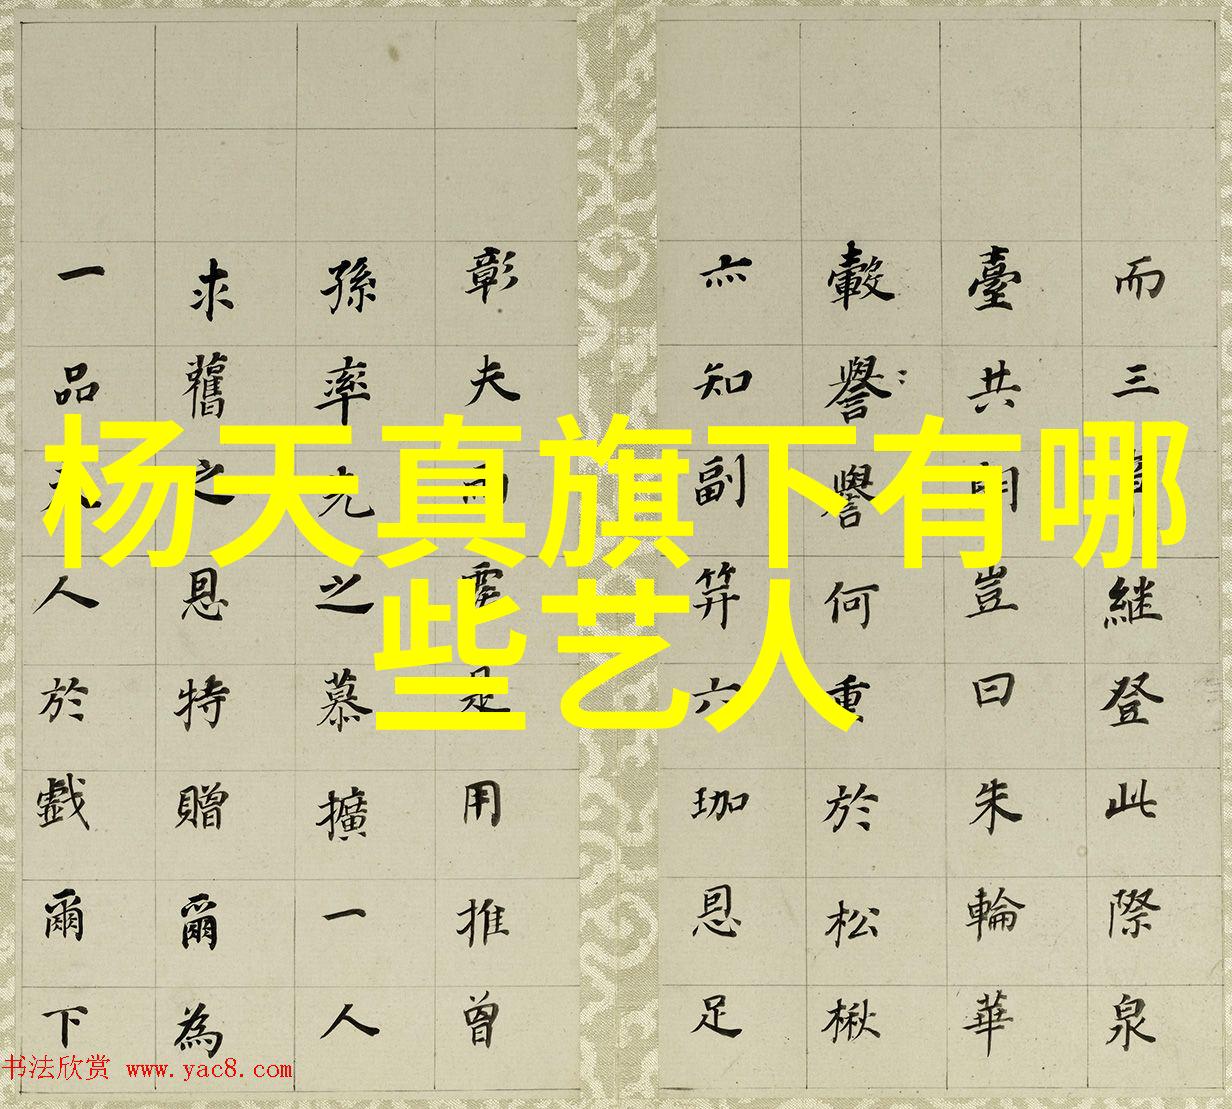 杨天真旗下有哪
些艺人
而三继登此際泉
臺共豈曰朱輪華
轂譽譽何重於松楸
亦知副筭六珈恩足
彰夫而是用推曾
孫率之慕擴一人
求舊之恩特贈爾為
一品人於戲爾下
书法欣赏 www.yac8.com